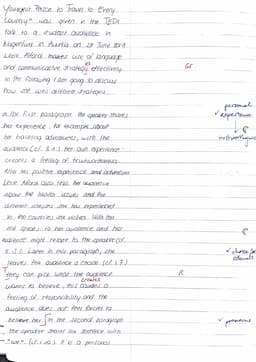 Youngest Person to Travel to Every
Country" was given in the TEDx
Talk to a student audience in
Klagenfurt in Austria on 29 June 2019.
Lexie Alford makes use of language
and communicative strategies effectively
in the following I am going to discuss
how she uses different strategies.
Gr
In the first paragraph the speaker shares
her experience, for example about
her traveling adventures, with the
audience (cf. ll.). Her own experience
creates a feeling of trustworthiness.
After her positive experience and adventures
Lexie Alford also tells her audience
about the health issues and the
different illnesses she has experienced
in the countries she visited. With this
she speaks to her audience and her
audience might relate to the speaker (cf.
Later in this paragraph, she
leaves the audience a choice (cf. l.7)
They can pick what the audience
wants to believe, this creates a
feeling of responsibility and the
audience does not feel forced to
believe her. In the second paragraph
the speaker starts the sentence with
"we" (cf. It is a personal
personal
experience
R
pronouns